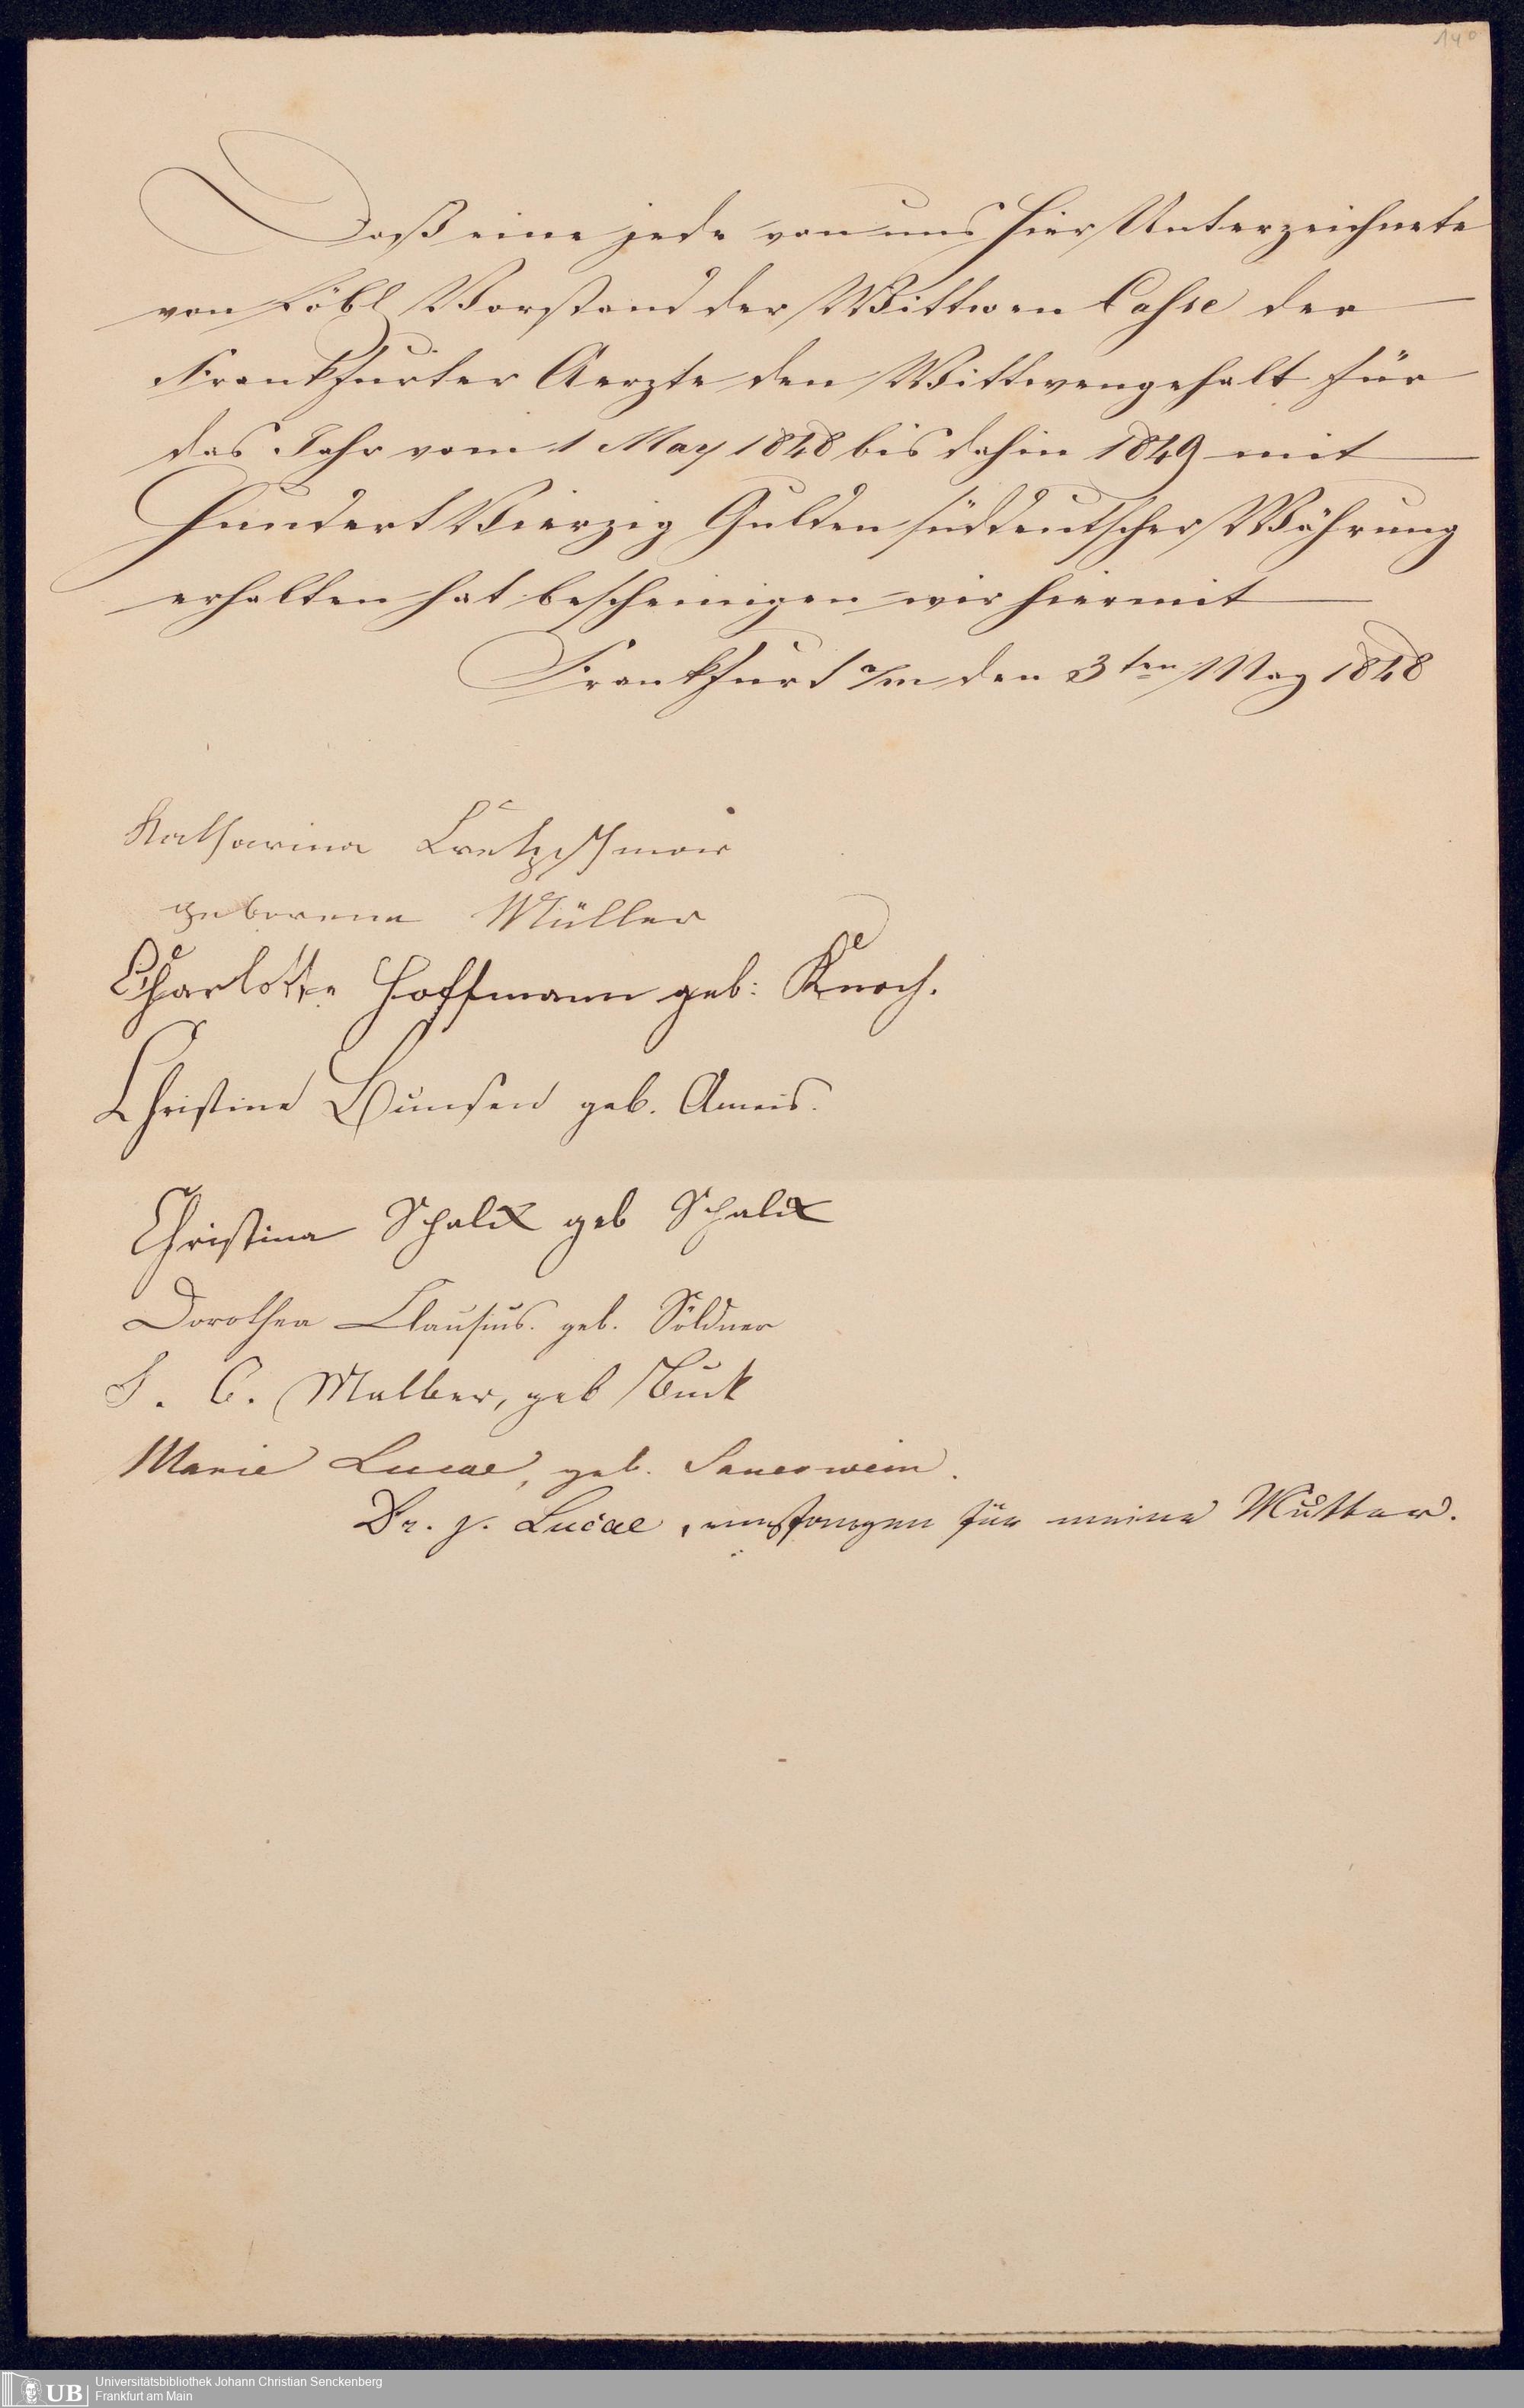 140
Daß eine jede von uns hier Unterzeichnete
von Löbl Vorstand der Wittwen Casse der
Frankfurter Aerzte den Wittwengehalt für
das Jahr vom 1 May 1848 bis dahin 1849 mit
Hundert Vierzig Gulden süddeutscher Währung
erhalten hat bescheinigen wir hiermit
Frankfurt a/m den 3ten May 1848
Katharina Cretzschmar
geborene Müller
Charlotte Hoffmann geb: Knoch.
Christine Bunsen geb. Ameis.
Christina Schalk geb Schalk
Dorothea Clausius. geb. Söldner
C. Malber, geb Buck
Marie Lucae, geb. Sauerwein.
Dr. J. Lucae, empfangen für meine Mutter.
UB
Universitätsbibliothek Johann Christian Senckenberg
Frankfurt am Main